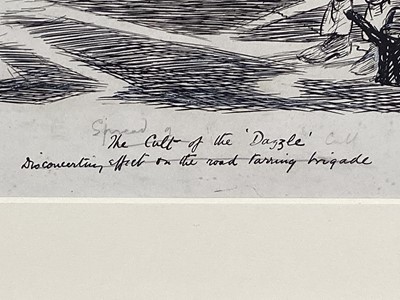 Spread of
The Cult of the 'Dazzle' Cult
Disconcerting effect on the road tarring brigade